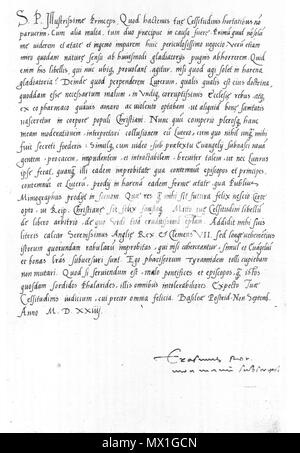 S. P. Illustrissime Princeps. Quod hactenus tuę Celsitudinis hortatibus nō
paruerim, Cum alia multa, tum duo precipue in causa fuere. Primū quod
me viderem et ętate et ingenio imparem huic periculosissimo negocio. Deinde etiam
miro quodam naturę sensu ab huiusmodi gladiatorijs pugnis abhorrerem. Quid
enim hoc libellis, qui nunc ubiq provolant, agitur, nisi quod agi solet in harena
gladiatoria? Deinde quod perpenderem Lutherū, qualis qualis est eius doctrina,
quoddam esse necessarium malum, in undiq corruptissimis Ecclesię rebus atq
ex eo pharmaco quamvis amaro ac violento optabam ut aliquid bonę sanitatis
nasceretur in corpore populi Christiani. Nunc qui comperio plerosq hanc
meam moderationem interpretari collusionem cū Lutero, cum quo nihil unq̄ mihi
fuit secreti foederis. Simulq cum video sub prętextu Evangelij subnasci novā
gentem, procacem, impudentem, et intractabilem, breviter talem, ut nec Luterus
ipse ferat, quanq̄ illi eadem improbitate qua contemnūt episcopos et principes,
contemnūt et Luterū, prodij in harenā eadem ferme ętate, qua Publius
Mimographus prodijt in scenam. Quę res q̄ mihi sit futura felix nescio. Certe
opto, ut Reip. Christianę sit felix faustaq. Mitto tuę Celsitudini libellū
de libero arbitrio, de quo Vidi tuā eruditionem etiam. Addidit mihi suis
literis calcar Serenissimus Anglię Rex et Clemens VII. Sed longe vehemētius
istorum quorundam rabularū improbitas, qui nisi coherceantur, simul et Euāgeliū
et bonas lrās subversuri sunt. Ego phariseorum Tyrannidem tolli cupiebam
non mutari. Quod si serviendum est, malo pontifices et episcopos, q̄
quosdam sordidos Phalarides, illis omnibus intolerabiliores. Expecto Tuę
Celsitudinis iudicium, cui precor omnia felicia. Basileę Postrid. Non. Septemb.
Anno M. D. XXIIIJ.
Erasmus Rot.
mea manu subscripsi
alamy
Image ID: MX1GCN
www.alamy.com